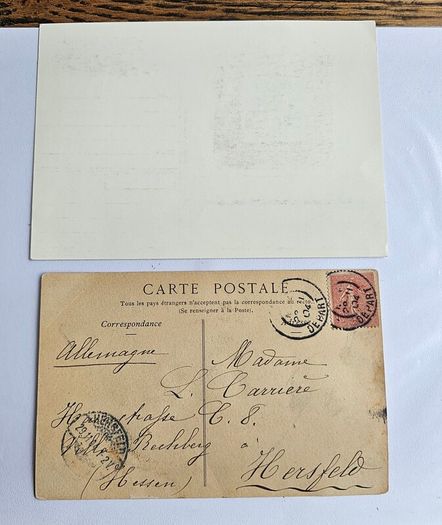 CARTE POSTALE
Tous les pays étrangers n'acceptent pas la correspondance au
(Se renseigner à la Poste).
Correspondance
Allemagne
Madame
L. Carrière
C. 8.
Rechberg à
Hersfeld
(Hessen)
DEPART
04
DEPART
04
HERSFELD